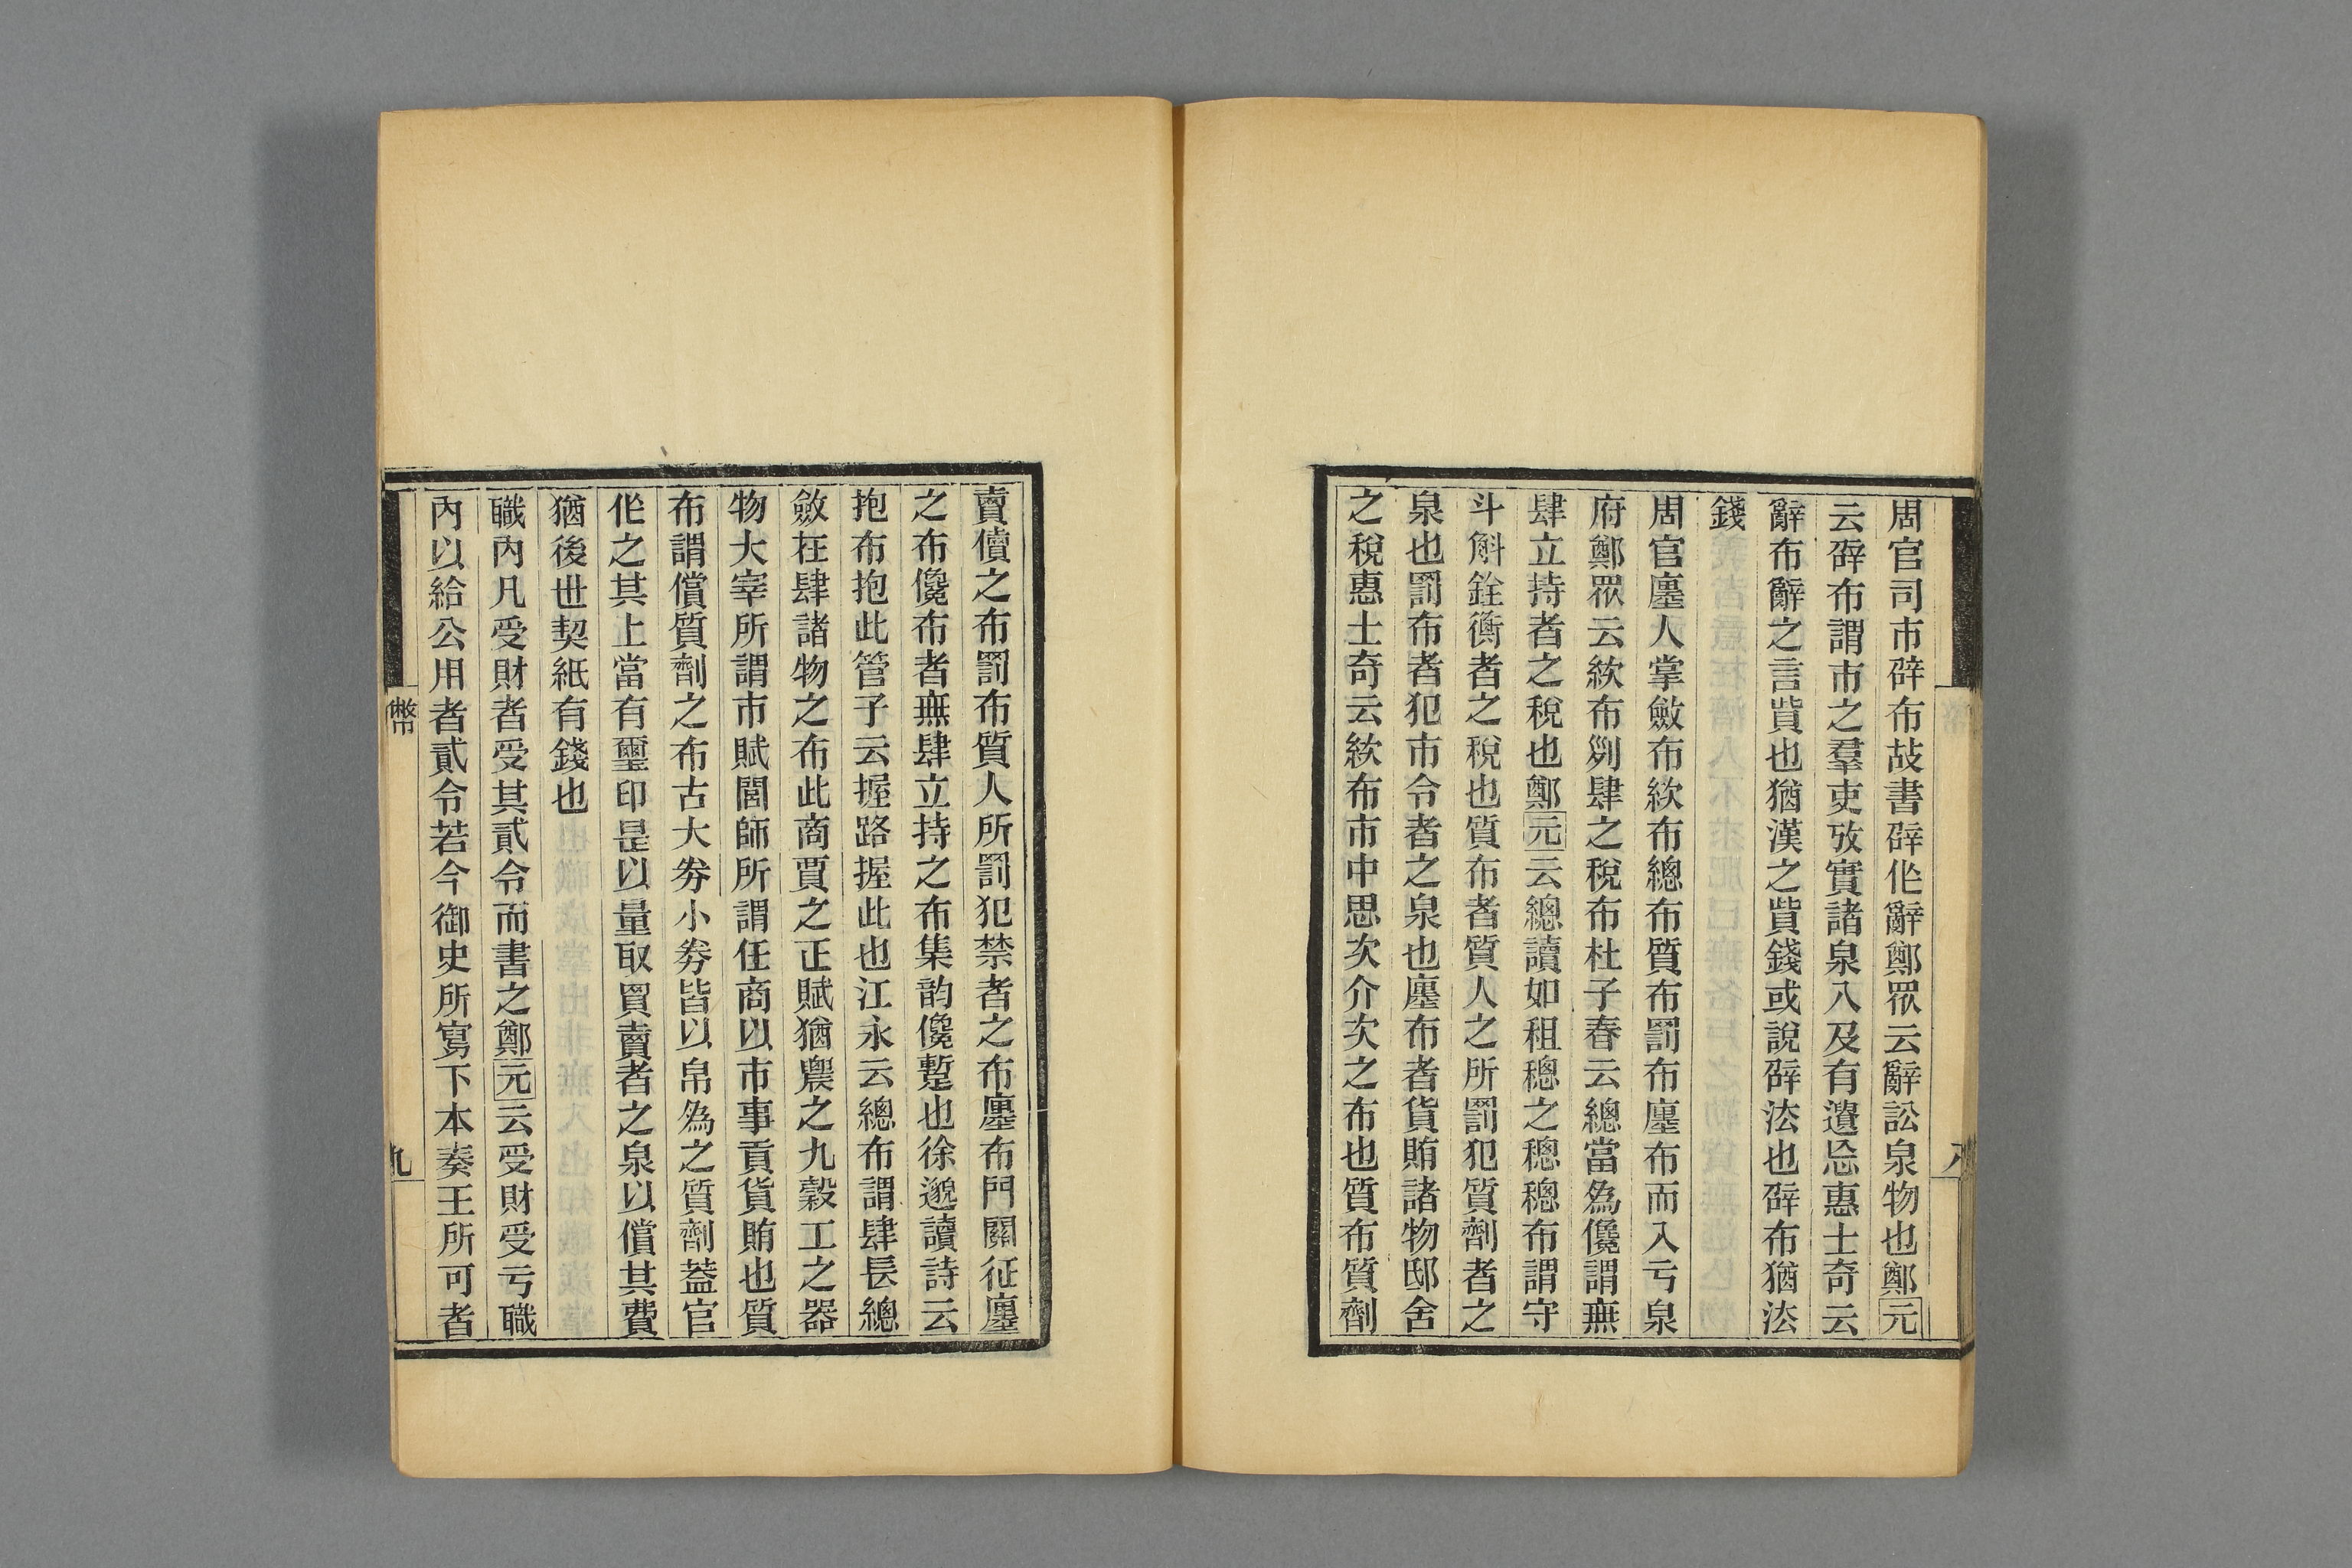 周官司市辟布故書辟作辭鄭眾云辭訟泉物也鄭元
云辟布謂市之羣吏攷實諸泉入及有遺忘惠士奇云
辭布辭之言貲也猶漢之貲錢或說辟法也辟布猶法
錢
周官廛人掌斂布絘布總布質布罰布廛布而入亏泉
府鄭眾云絘布列肆之稅布杜子春云總當為儳謂無
肆立持者之稅也鄭元云總讀如租穗之穗穗布謂守
斗斛銓衡者之稅也質布者質人之所罰犯質劑者之
泉也罰布者犯市令者之泉也廛布者貨賄諸物邸舍
之稅惠士奇云絘布市中思次介次之布也質布質劑
八
賣儥之布罰布質人所罰犯禁者之布廛布門關征廛
之布儳布者無肆立持之布集韵儳蹔也徐邈讀詩云
抱布抱此管子云握路握此也江永云總布謂肆長總
斂在肆諸物之布此商賈之正賦猶農之九穀工之器
物大宰所謂市賦閭師所謂任商以市事貢貨賄也質
布謂償質劑之布古大券小券皆以帛為之質劑蓋官
作之其上當有璽印是以量取買賣者之泉以償其費
猶後世契紙有錢也
職內凡受財者受其貳令而書之鄭元云受財受亏職
內以給公用者貳令若今御史所寫下本奏王所可者
幣
九